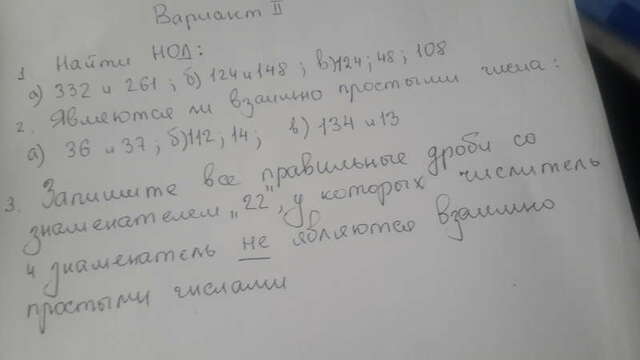 Вариант II
1 Найти НОД:
а) 332 и 261 ; б) 124 и 148 ; в) 124 ; 48 ; 108
2. Являются ли взаимно простыми числа:
а) 36 и 37 ; б) 112 ; 14 ; в) 134 и 13
3. Запишите все правильные дроби со
знаменателем „22", у которых числитель
и знаменатель не являются взаимно
простыми числами